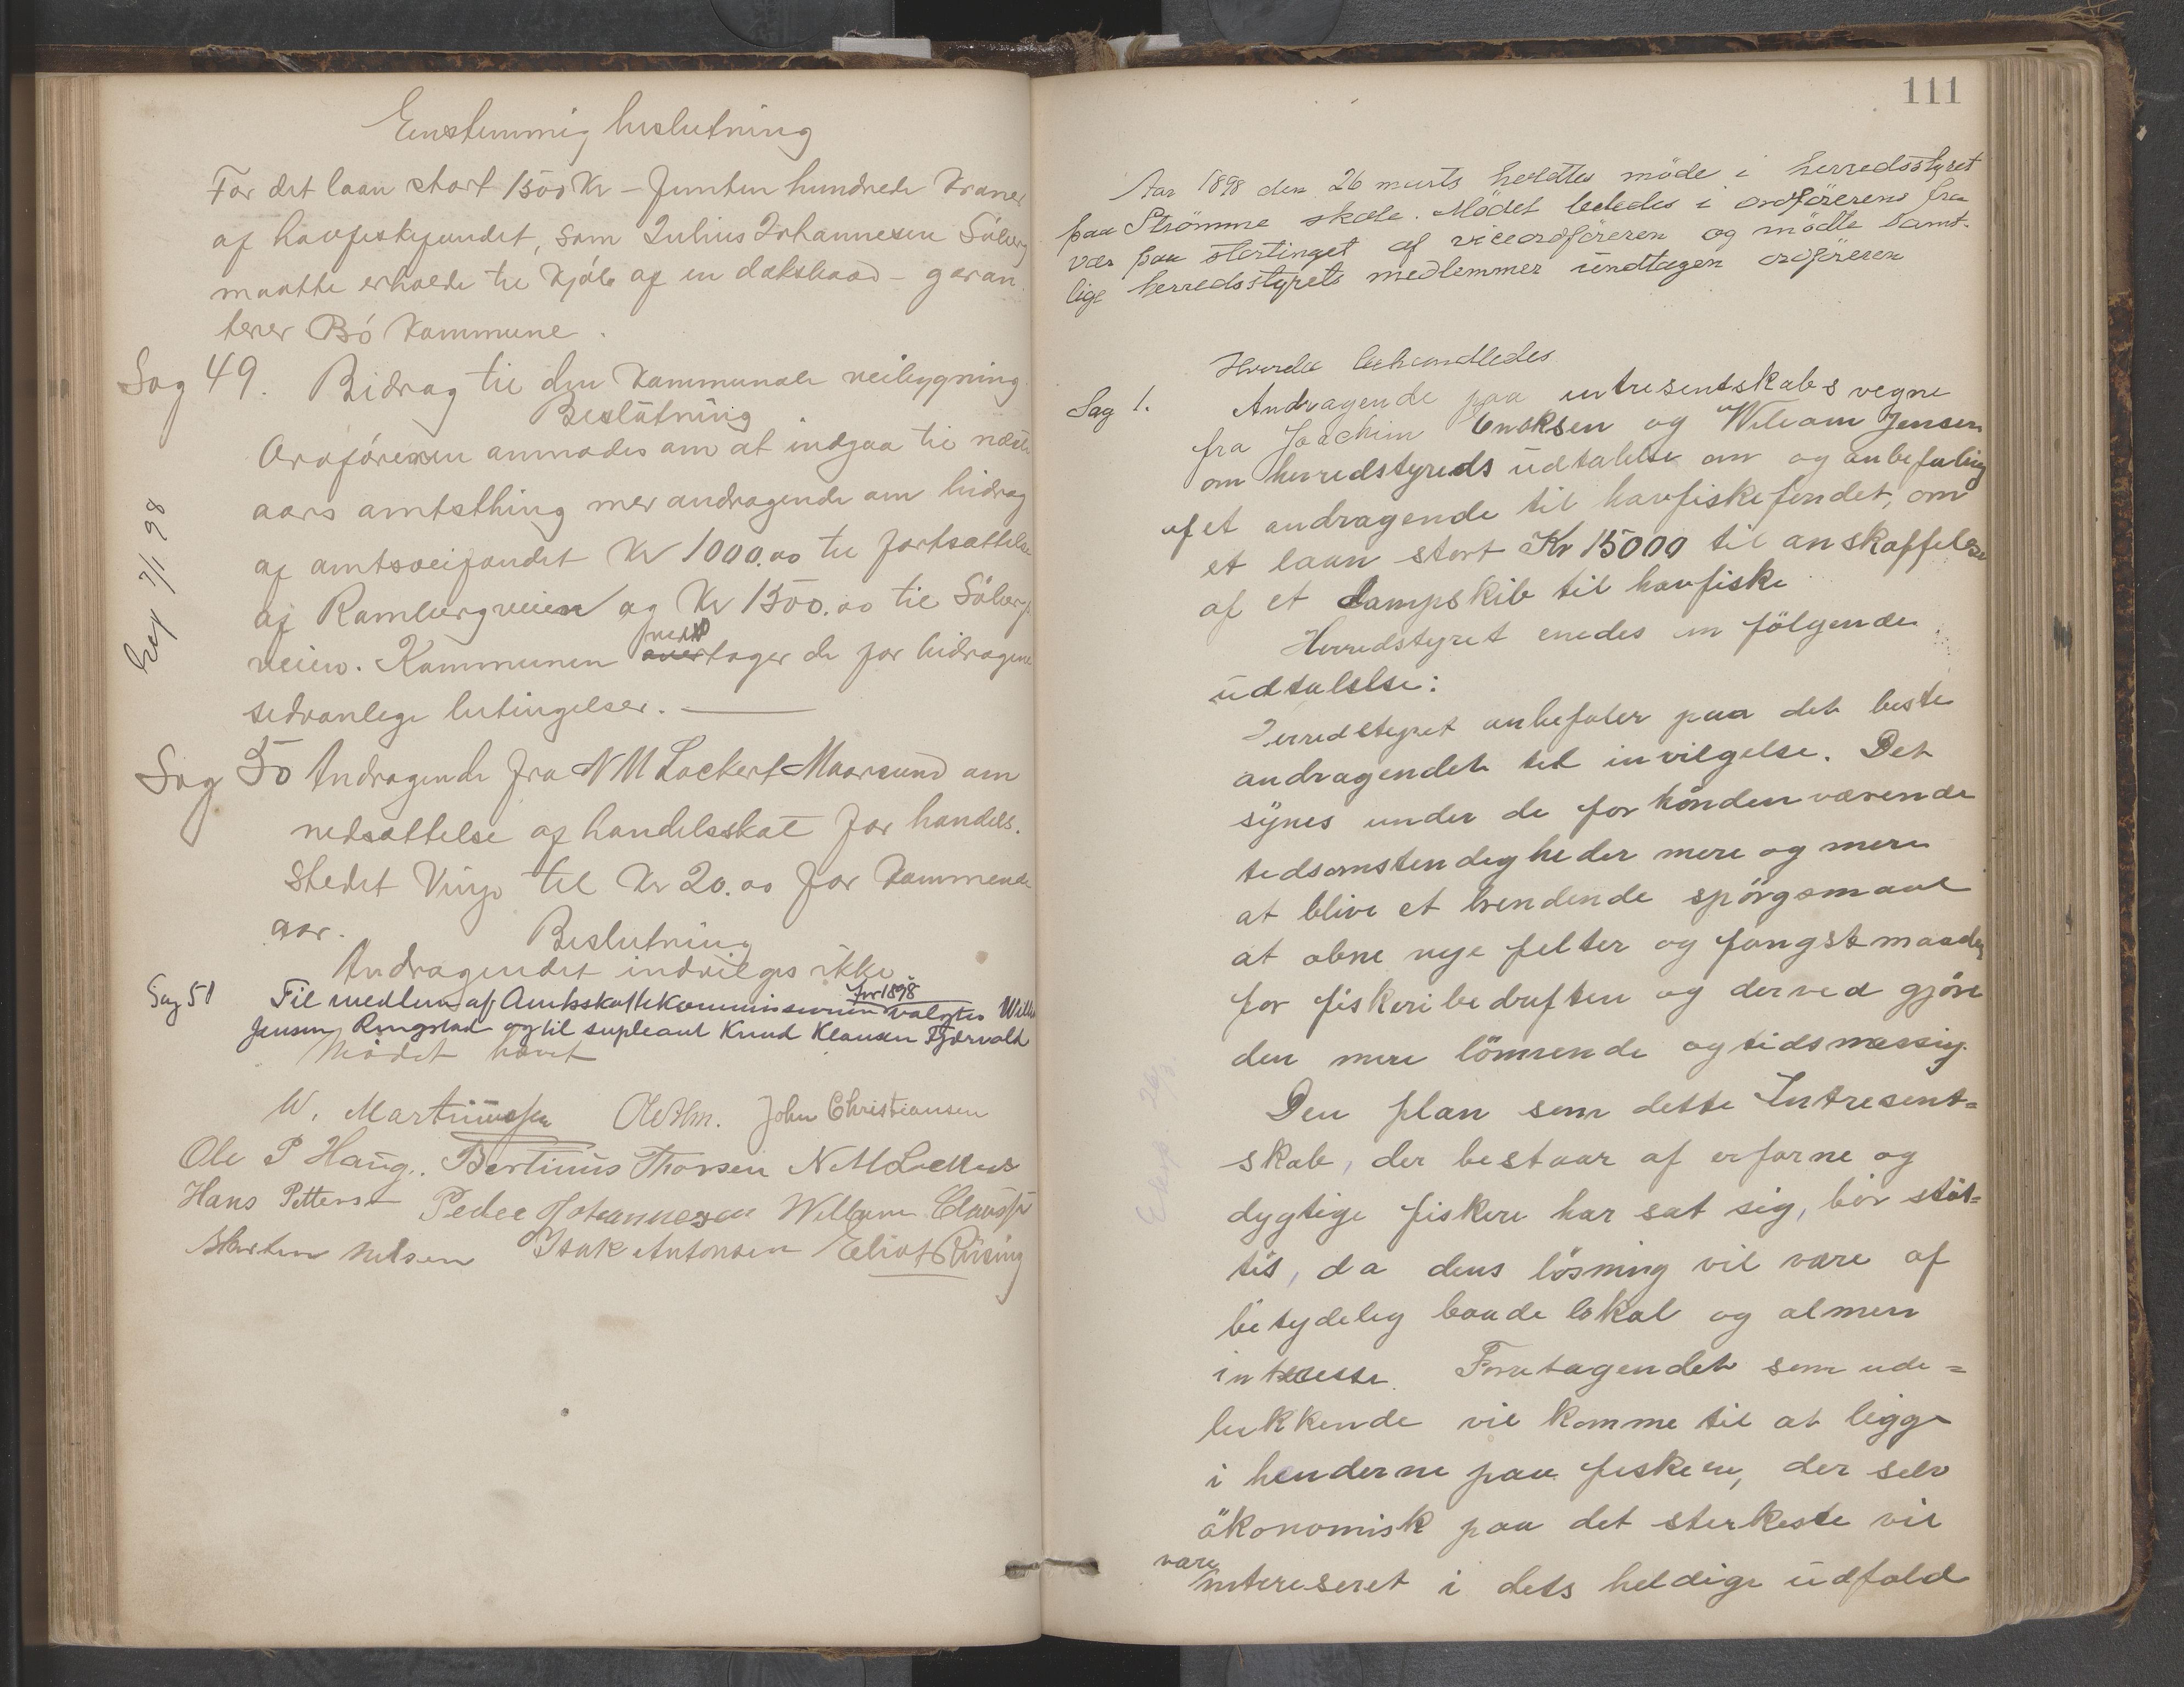 Eenstemmig beslutning
For det laan stort 1500 Kr - femten hundrede Kroner
af havfiskefondet, som Julius Johannesen Sölberg
maatte erholde til Kjöb af en dæksbaad - garan
terer Bö Kommune.
Sag 49. Bidrag til den Kommunale veibygning
Beslutning
Ordföreren anmodes om at indgaa til næste
aars amtsthing med andragende om bidrag
af amtsveifondet Kr 1000.00 til fortsættelse
af Rambergveien og Kr 1500.00 til Sölberg
veien. Kommunen vedtager de for bidragene
sedvanlige betingelser.
Exp 7/1 98
Sag 50 Andragende fra N M Lockert Maarsund om
nedsættelse af handelsskat for handels.
stedet Vinje til Kr 20.00 for Kommende
aar.
Beslutning
Andragendet indvilges ikke
Sag 51 Til medlem af Amtsskattekommissionen for 1898 valgtes Willi
Jensen Ringstad og til supleant Knud Klausen Fjærvold
Mödet hævet
W. Martinussen John Christiansen
Ole P Haug. Bertinus Thorsen N M Lockert
Hans Pettersen Peder Johannesen William Claussen
Morten Nilsen Isak Antonsen Eliot Rüsing
111
Aar 1898 den 26 marts holdtes möde i herredsstyret
paa Strömme skole. Mödet lededes i ordförerens fra
vær paa stortinget af viceordföreren og mödte samt-
lige herredsstyrets medlemmer undtagen ordföreren
Hvorda behandledes
Sag 1. Andragende paa intresentskabs vegne
fra Joachim Enoksen og Wiliam Jensen
om herredstyreds udtalelse om og anbefaling
af et andragende til havfiskefondet, om
et laan stort Kr 15000 til anskaffelse
af et dampskib til havfiske
Herredstyret enedes om fölgende
udtalelse:
Herredstyret anbefaler paa det beste
andragendet til invilgelse. Det
synes under de for hönden værende
tidsomstendigheder mere og mere
at blive et brendende spörgsmaal
at abne nye felter og fangstmaader
for fiskeribedriften og derved gjöre
den mere lönnende og tidsmæssig.
Den plan som dette Intresent=
skab, der bestaar af erfarne og
dygtige fiskere har sat sig, bör stöt=
tes, da dens lösning vil være af
betydelig baade lokal og almen
interesse. Foretagendet som ude=
lukkende vil komme til at ligge
i henderne paa fiskere, der selv
ökonomisk paa det sterkeste vil
være intereseret i dets heldige udfald
Exp. 26/3